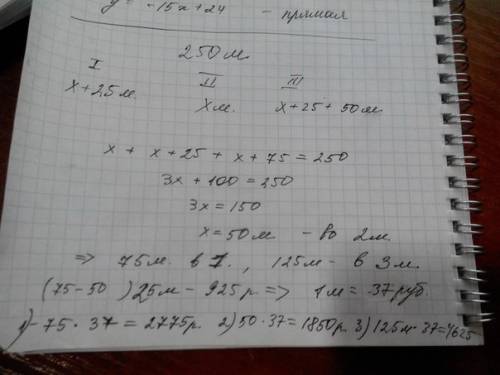 y = -15x+24 - прямая
250 м.
I II III
x+25 м. x м. x+25+50 м
x + x+25 + x+75 = 250
3x + 100 = 250
3x = 150
x = 50 м - во 2 м.
=> 75 м. в 1. , 125 м - в 3 м.
(75-50) 25 м - 925 р => 1 м = 37 руб.
1) 75 · 37 = 2775 р. 2) 50 · 37 = 1850 р. 3) 125 м · 37 = 4625